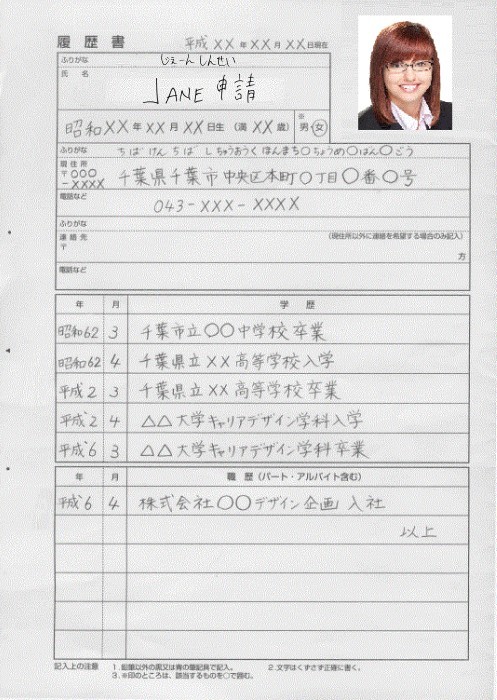 履歴書 平成 XX 年 XX 月 XX 日現在
ふりがな じぇーん しんせい
氏名 JANE 申請
昭和 XX 年 XX 月 XX 日生 (満 XX 歳) ※ 男・女
ふりがな ちばけん ちばし ちゅうおうく ほんまち〇ちょうめ〇ばん〇ごう
現住所
〒〇〇〇-XXXX 千葉県千葉市中央区本町〇丁目〇番〇号
電話など 043-XXX-XXXX
ふりがな
連絡先 (現住所以外に連絡を希望する場合のみ記入)
〒 方
電話など
年 月 学歴
昭和62 3 千葉市立〇〇中学校卒業
昭和62 4 千葉県立XX高等学校入学
平成2 3 千葉県立XX高等学校卒業
平成2 4 △△大学キャリアデザイン学科入学
平成6 3 △△大学キャリアデザイン学科卒業
年 月 職歴(パート・アルバイト含む)
平成6 4 株式会社〇〇デザイン企画 入社
以上
記入上の注意 1.鉛筆以外の黒又は青の筆記具で記入。 2.文字はくずさず正確に書く。
3.※印のところは、該当するものを〇で囲む。